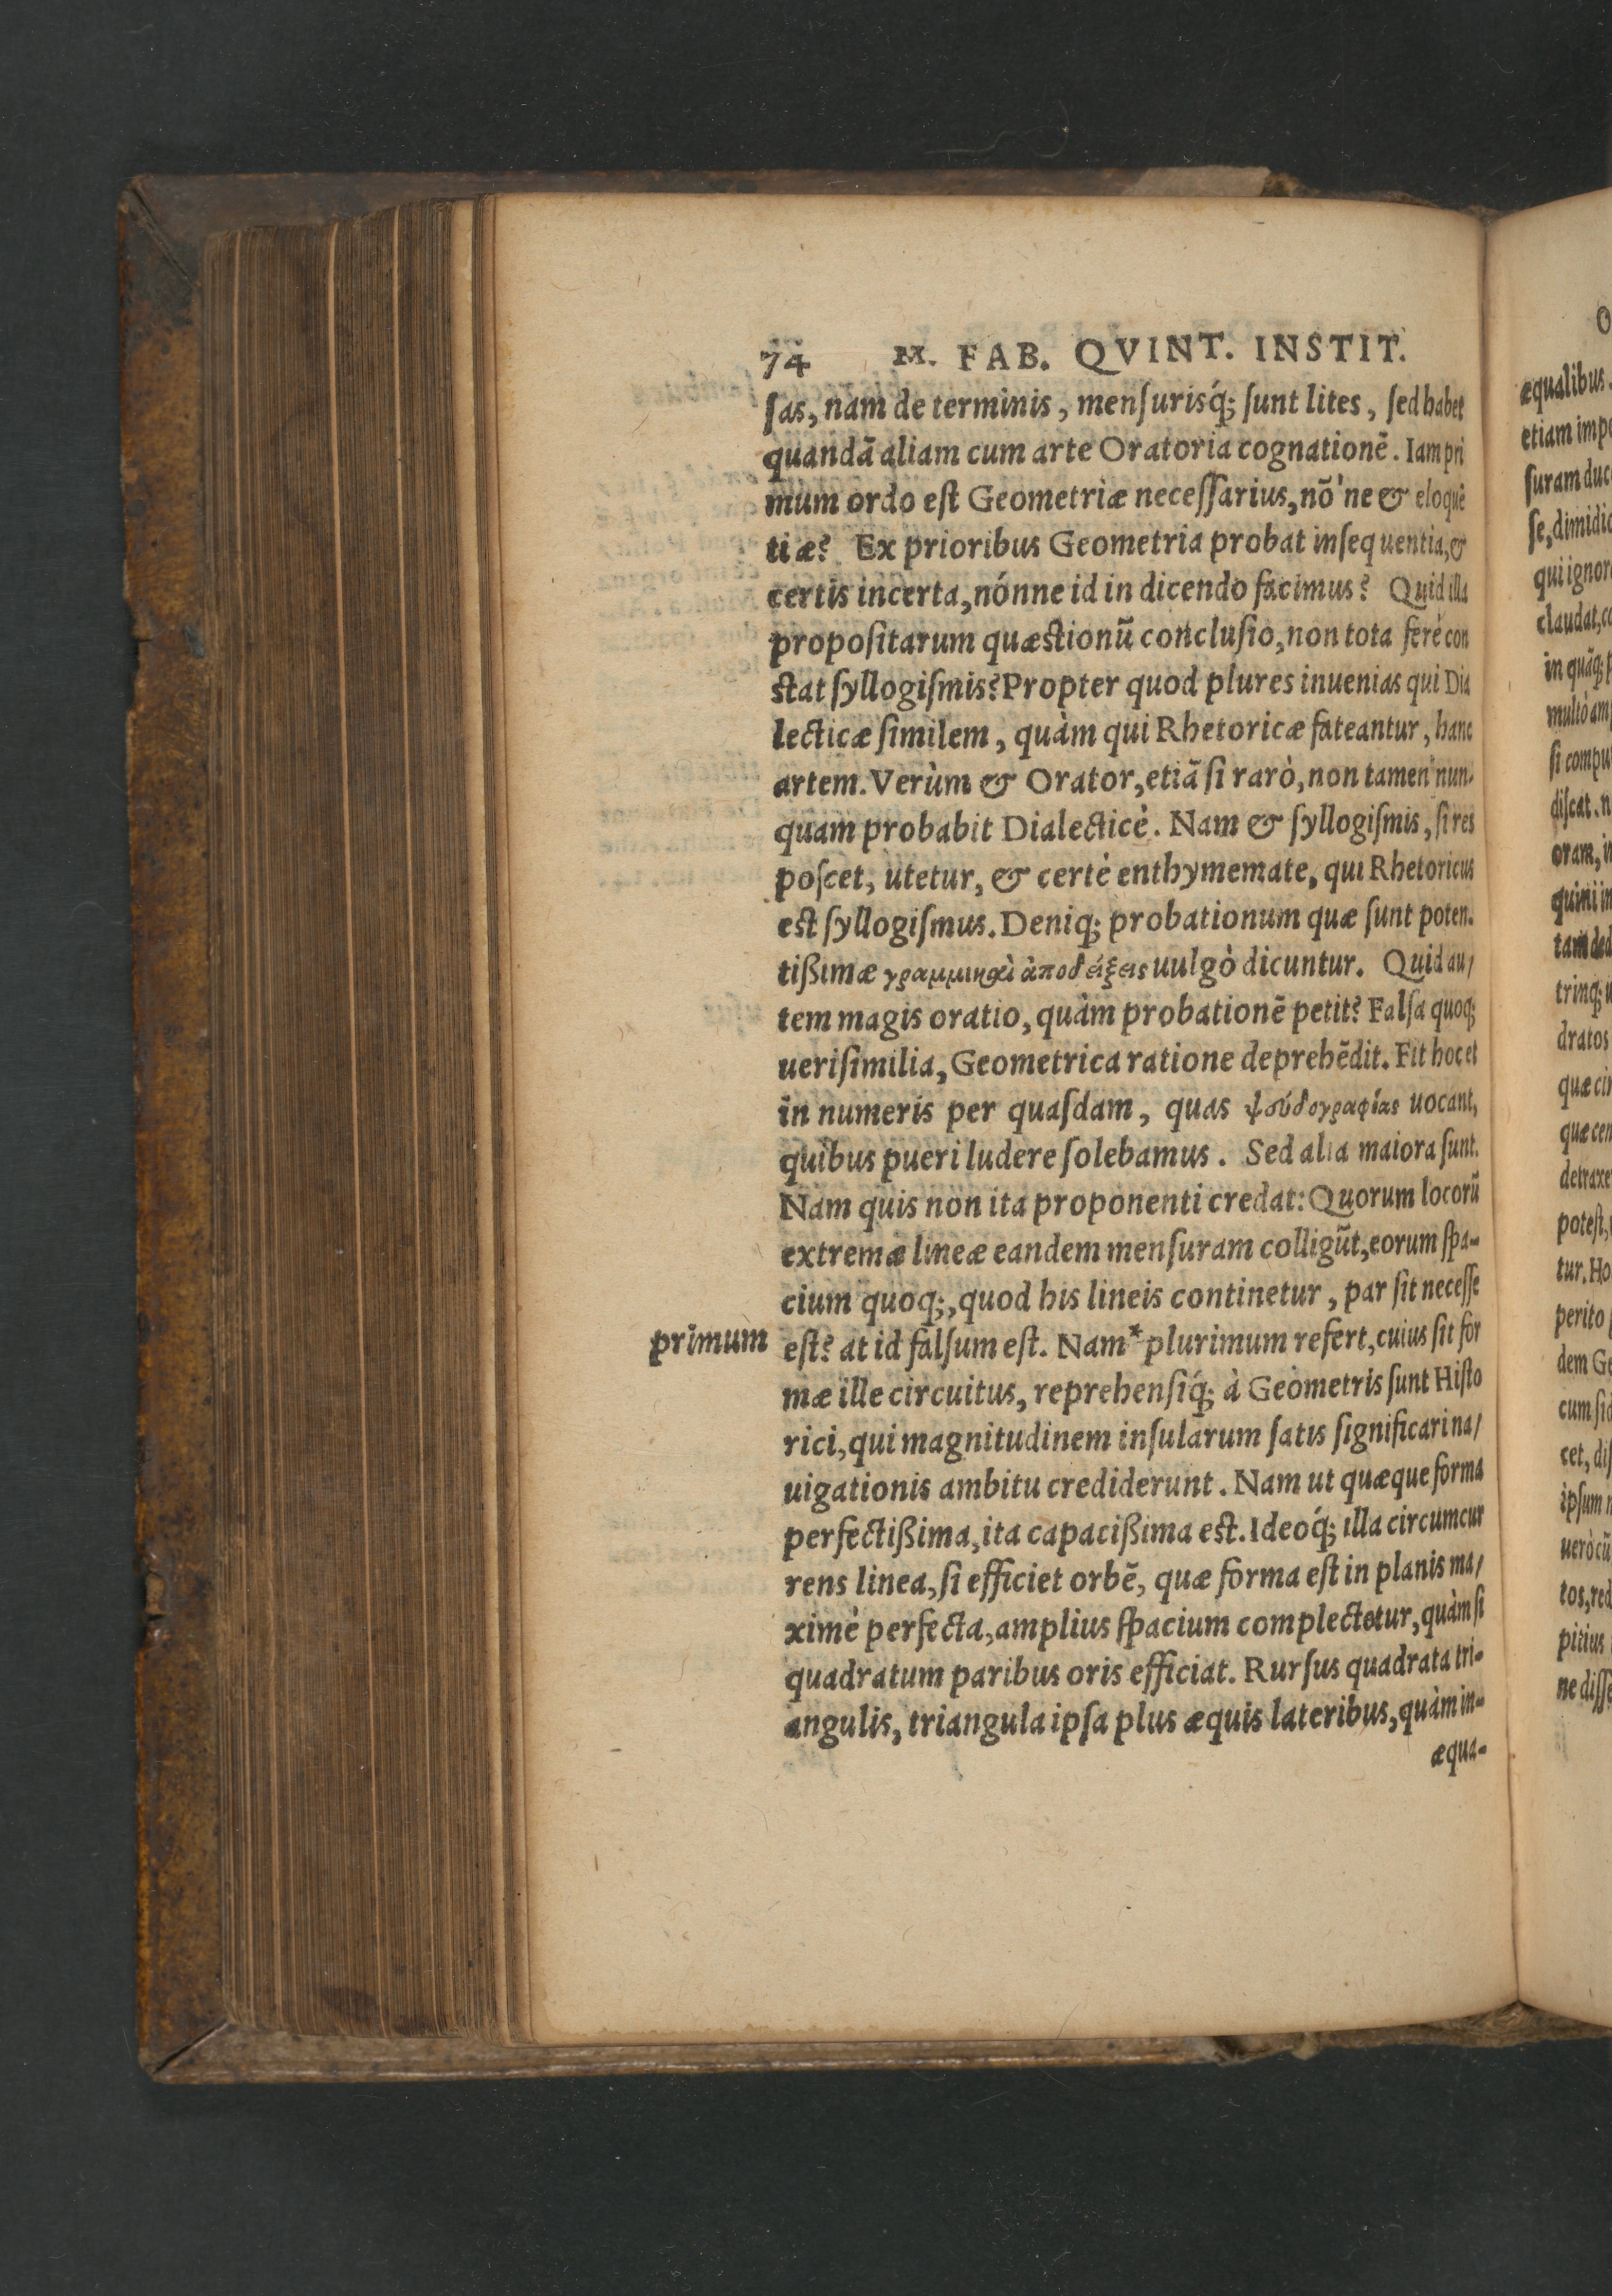 74 M. FAB. QVINT. INSTIT.
ſas, nam de terminis, menſurisq́; ſunt lites, ſed habet
quandā aliam cum arte Oratoria cognationē. Iam pri
mum ordo eſt Geometriæ neceſſarius, nō'ne & eloquē
tiæ? Ex prioribus Geometria probat inſequentia, &
certis incerta, nónne id in dicendo facimus? Quid illa
propoſitarum quæſtionū concluſio, non tota ferè con
ſtat ſyllogiſmis? Propter quod plures inuenias qui Dia
lecticæ ſimilem, quàm qui Rhetoricæ fateantur, hanc
artem. Verùm & Orator, etiā ſi rarò, non tamen nun-
quam probabit Dialecticè. Nam & ſyllogiſmis, ſi res
poſcet, utetur, & certè enthymemate, qui Rhetoricus
eſt ſyllogiſmus. Deniq; probationum quæ ſunt poten-
tißimæ γραμμικαὶ ἀποδείξεις uulgò dicuntur. Quid au/
tem magis oratio, quàm probationē petit? Falſa quoq;
ueriſimilia, Geometrica ratione deprehēdit. Fit hoc et
in numeris per quaſdam, quas ψευδογραφίας uocant,
quibus pueri ludere ſolebamus. Sed alia maiora ſunt.
Nam quis non ita proponenti credat: Quorum locorū
extremæ lineæ eandem menſuram colligūt, eorum ſpa-
cium quoq;, quod his lineis continetur, par ſit neceſſe
primum
eſt? at id falſum eſt. Nam* plurimum refert, cuius ſit for
mæ ille circuitus, reprehenſiq́; à Geometris ſunt Hiſto
rici, qui magnitudinem inſularum ſatis ſignificari na/
uigationis ambitu crediderunt. Nam ut quæque forma
perfectißima, ita capacißima eſt. Ideoq́; illa circumcur
rens linea, ſi efficiet orbē, quæ forma eſt in planis ma/
ximè perfecta, amplius ſpacium complectetur, quàm ſi
quadratum paribus oris efficiat. Rurſus quadrata tri-
angulis, triangula ipſa plus æquis lateribus, quàm in-
æqua-
æqualibus.
ſuram duc
qui ignor
ſi compu
diſcat. n
oram, in
dratos
quæ cir
quæ cen
detraxe
poteſt,
tur. Ho
perito
dem Ge
cet, diſ
pitius
ne diſſe